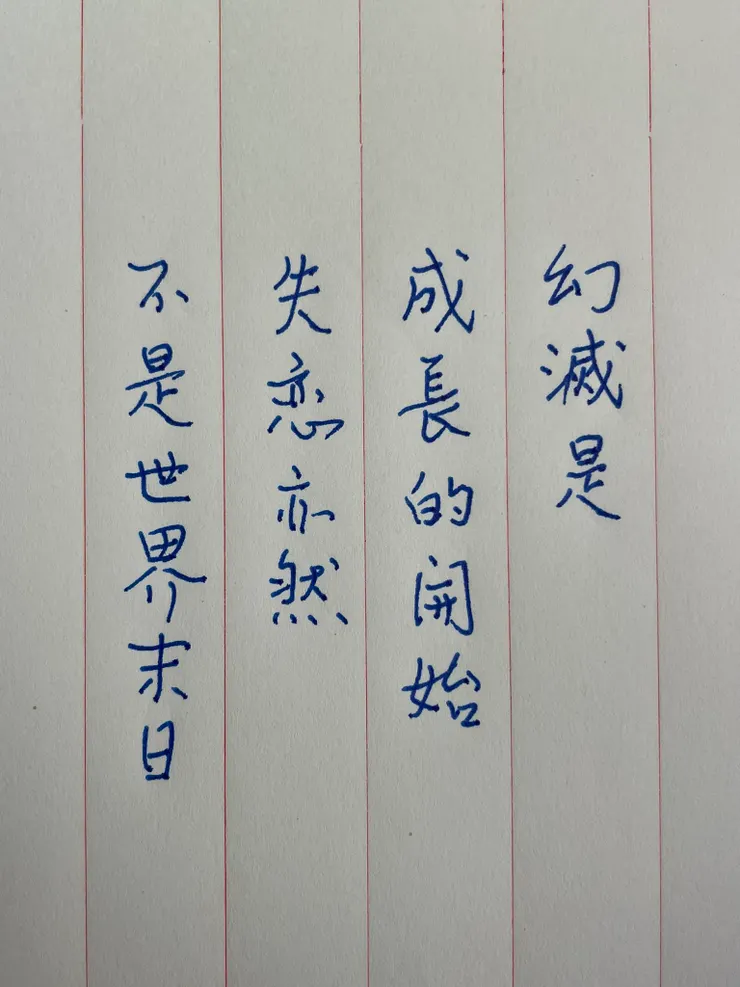 幻滅是
成長的開始
失恋亦然
不是世界末日